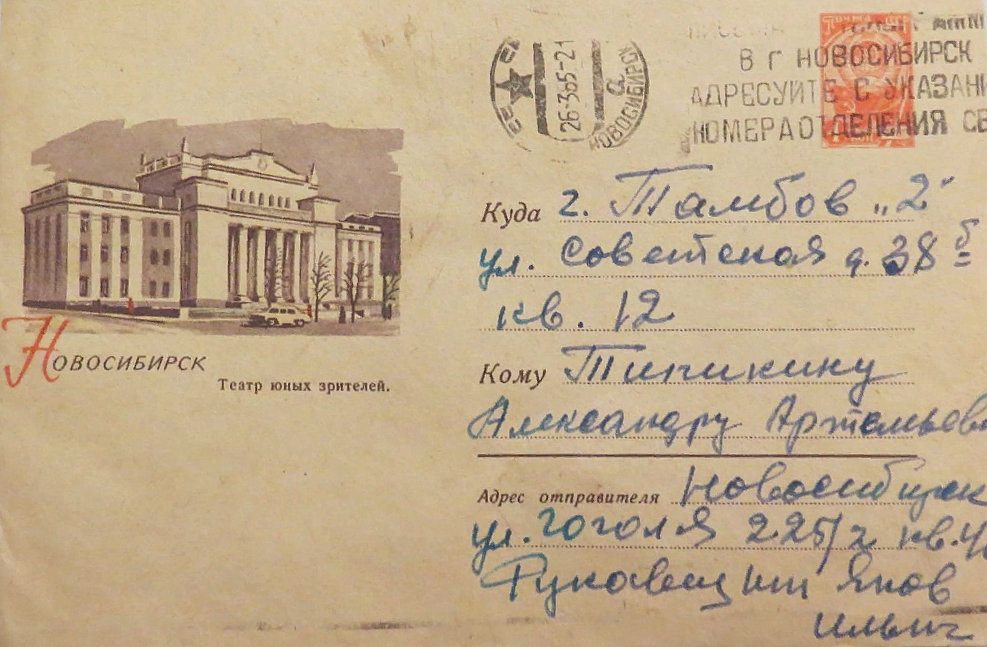 ПОЧТА СССР
В Г НОВОСИБИРСК
АДРЕСУЙТЕ С УКАЗАНИ
НОМЕРА ОТДЕЛЕНИЯ СВ
26-3 65-21
а
НОВОСИБИРСК
Куда г. Тамбов „2"
ул. Советская д. 38 б
кв. 12
Кому Типикину
Александру Артемьев
Адрес отправителя Новосибирск
ул. Гоголя 225/2 кв. 4
Рукавец Яков
Ильич
НОВОСИБИРСК
Театр юных зрителей.